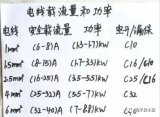 电线载流量和功率
电线 安全载流量 功率 空开/漏保
1mm² (6-8)A (1.3-1.7)kw C10
1.5mm² (8-15)A (1.7-3.3)kw C16/
2.5mm² (16-25)A (3.5-5.5)kw C25/C16
4mm² (25-32)A (5.5-7)kw C32
6mm² (32-40)A (7-8.8)kw C40